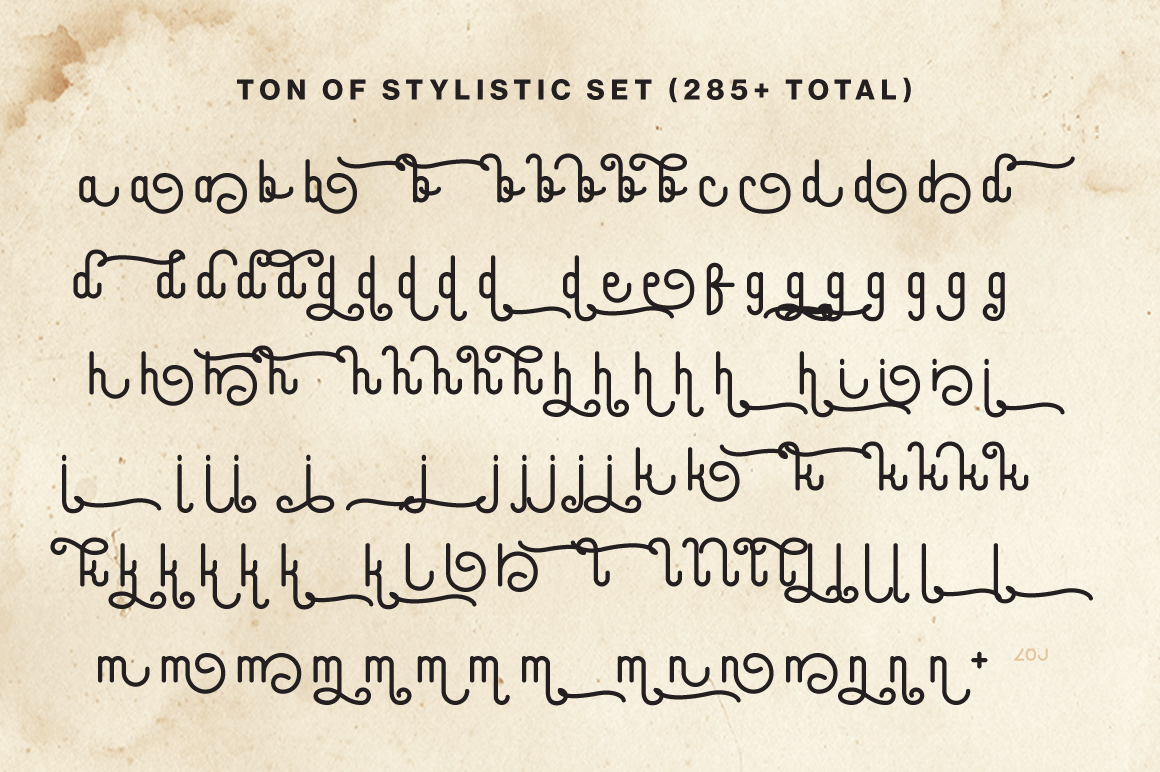 TON OF STYLISTIC SET (285+ TOTAL)
a a a b b b b b b b b c c d d d d
d d d d d d d d d d d e e f g g g g g g g
h h h h h h h h h h h h h h h i i i i
i i i i j j j j j j j k k k k k k k
k k k k k k k l l l l l l l l l l l l l l l
m m m m m m m m m n n n n n n +